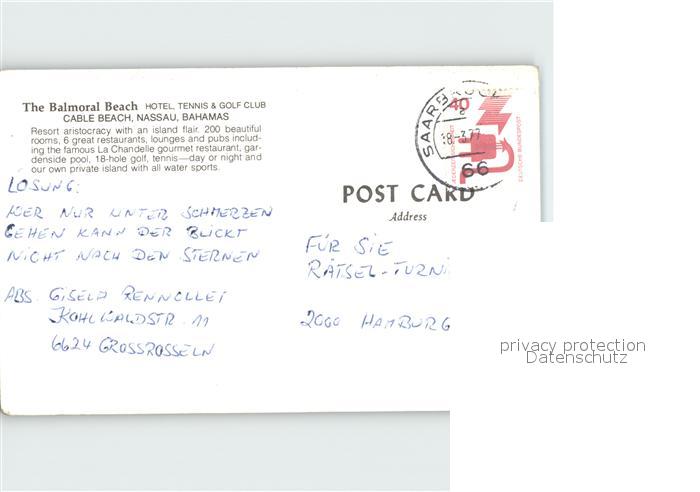 The Balmoral Beach HOTEL, TENNIS & GOLF CLUB
CABLE BEACH, NASSAU, BAHAMAS
Resort aristocracy with an island flair. 200 beautiful
rooms, 6 great restaurants, lounges and pubs includ-
ing the famous La Chandelle gourmet restaurant, gar-
denside pool, 18-hole golf, tennis—day or night and
our own private island with all water sports.
LÖSUNG:
WER NUR UNTER SCHMERZEN
GEHEN KANN DER BLICKT
NICHT NACH DEN STERNEN
ABS. GISELA RENNOLLET
KOHLWALDSTR. 11
6624 GROSSROSSELN
SAARBRÜCK
40
66
DEUTSCHE BUNDESPOST
POST CARD
Address
FÜR SIE
RÄTSEL-TURNI
2000 HAMBURG
privacy protection
Datenschutz